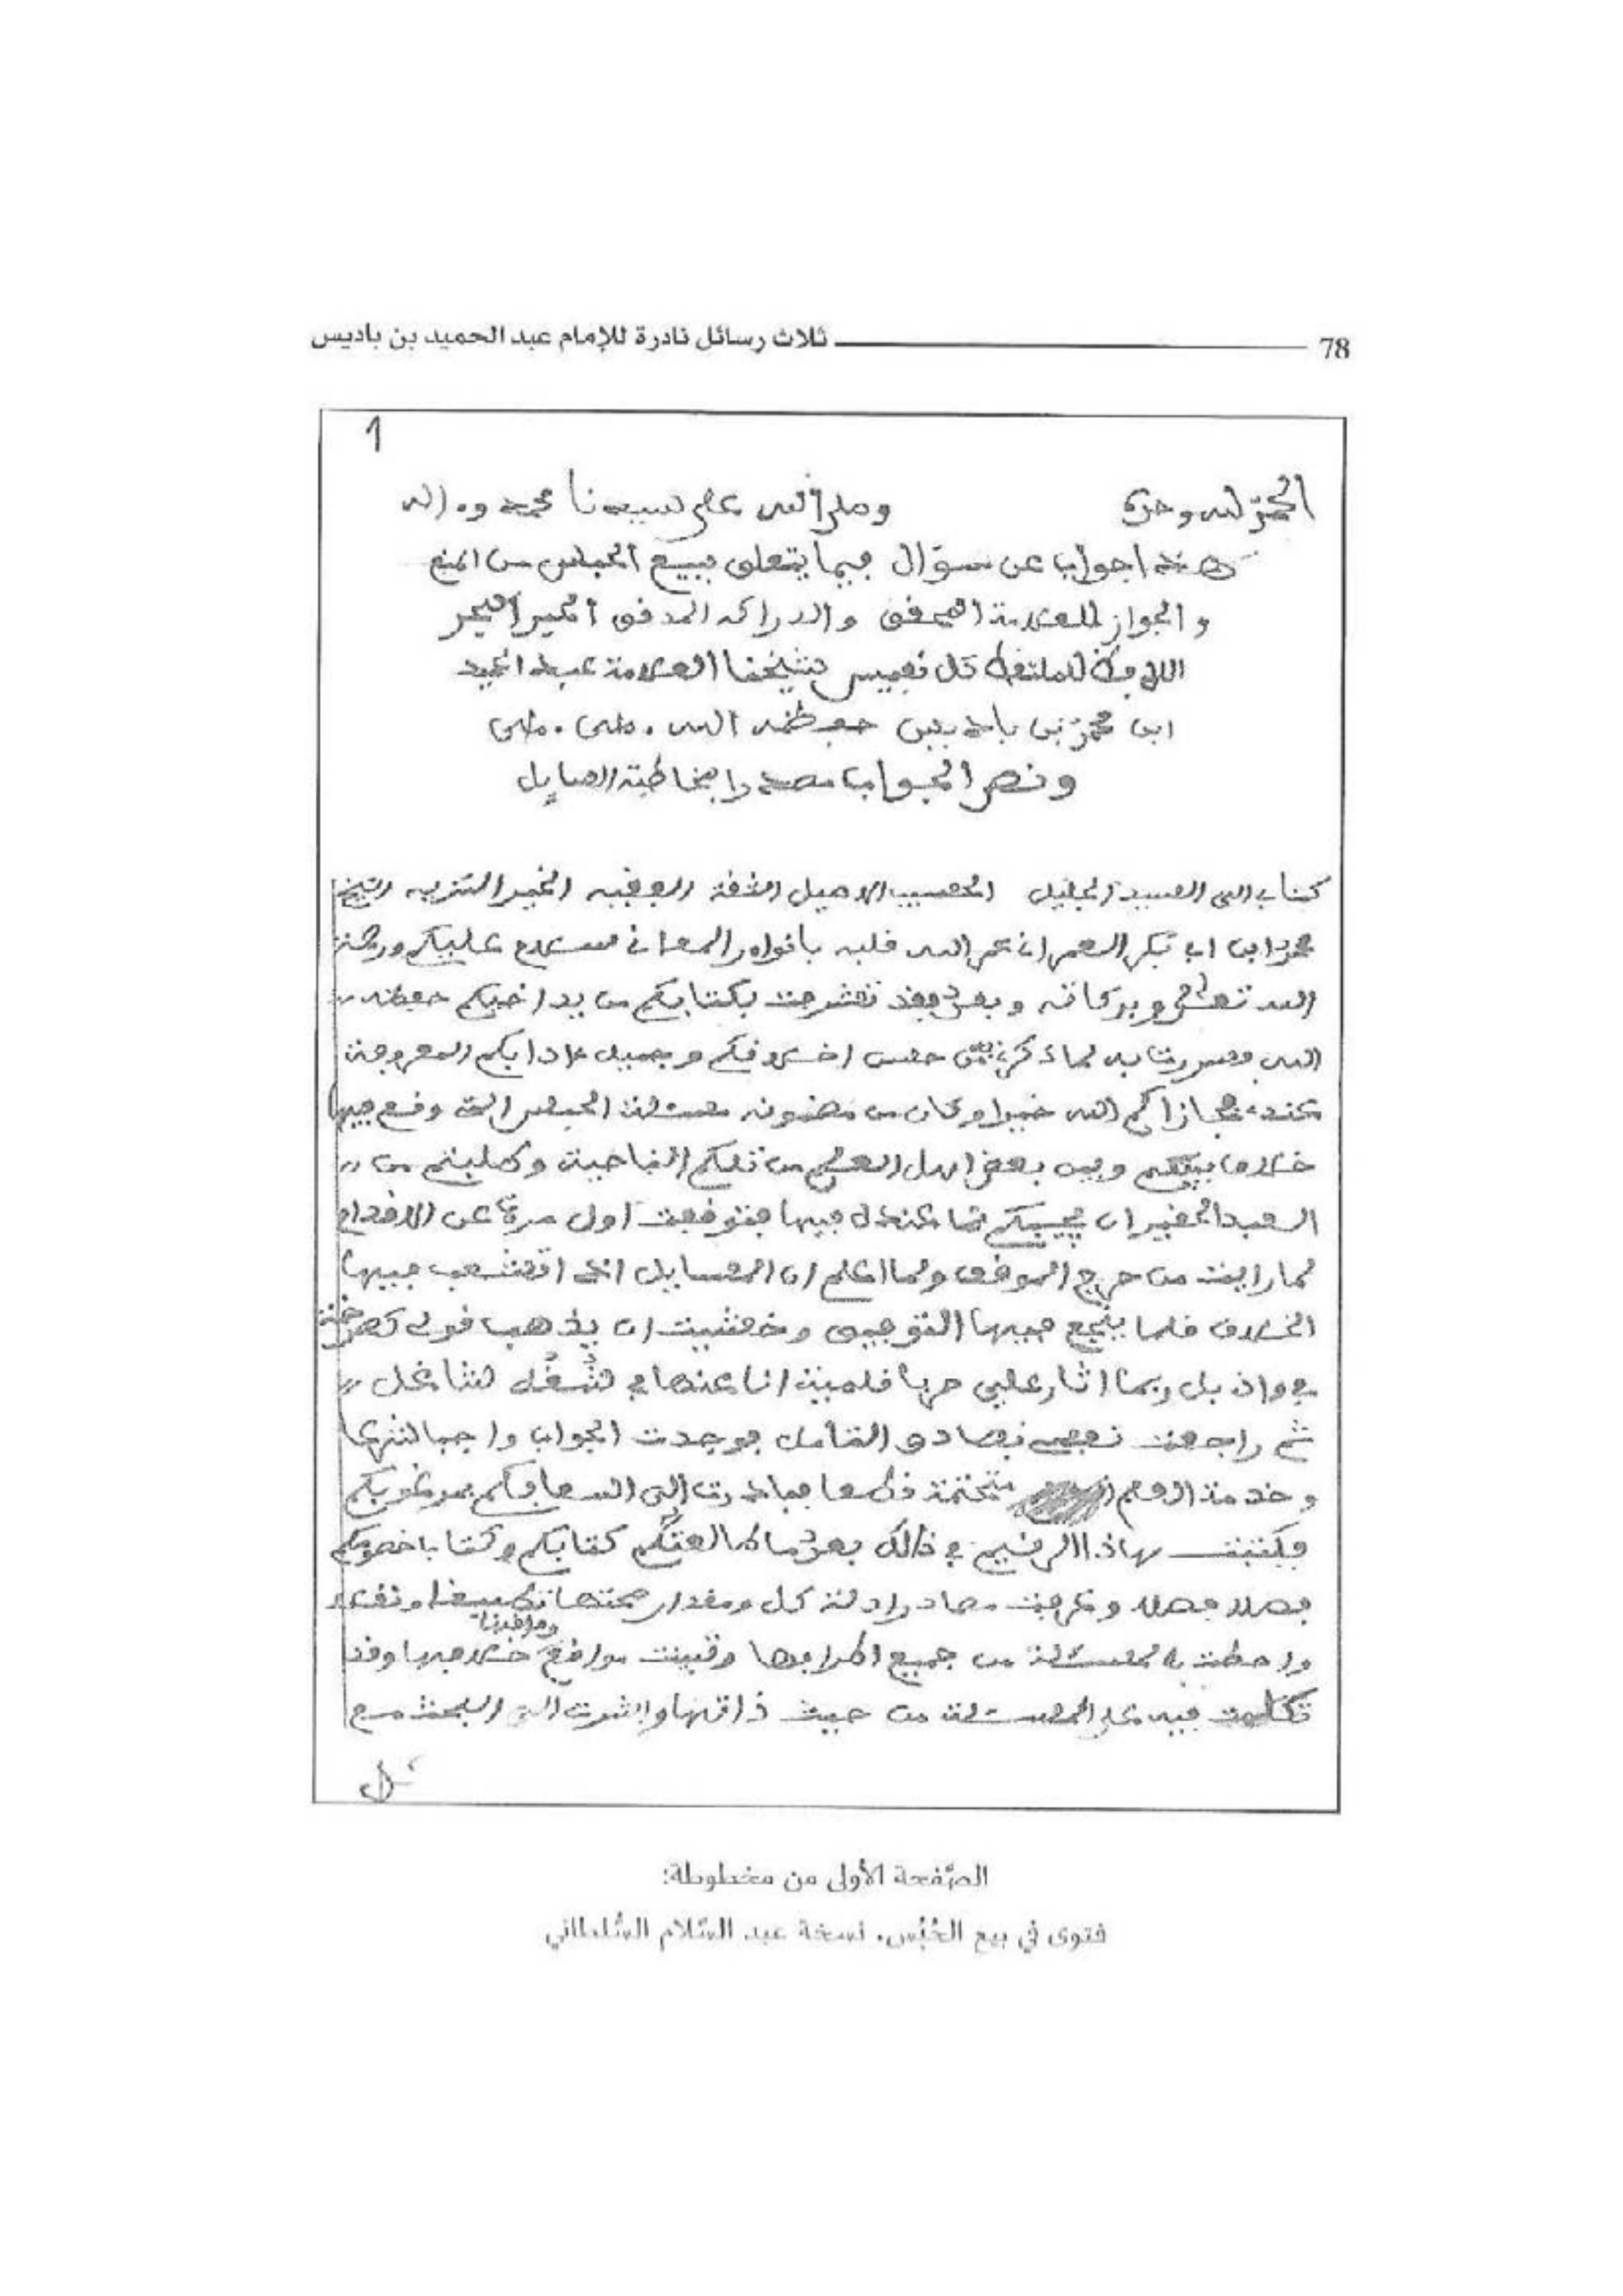 78 ثلاث رسائل نادرة للإمام عبد الحميد بن باديس
1
الحمد لله وحده وصلى الله على سيدنا محمد وءاله
هذه اجواب عن سؤال فيما يتعلق ببيع الحبس من المنع
والجواز للعلامة المحقق والدراكه المدقق الحبر البحر
اللافظ للملتقط كل نفيس شيخنا العلامة عبد الحميد
ابن محمد بن باديس حفظه الله
ونص الجواب مصدرا بمخاطبة السايل
كتاب الى السيد الجليل الحسيب الاصيل الثقة الفقيه الخير النزيه الشيخ
محمد ابن ابي بكر العمراني عمر الله قلبه بانوار المعاني سلام عليكم ورحمة
الله تعلى وبركاته وبعد فقد تشرفت بكتابكم من يد اخيكم حفظه
الله وسررت به لما ذكرني من حسن اخلاقكم وجميل ءادابكم المعروفة
عنده فجازاكم الله خيرا وكان من مضمونه مسئلة الحبس التي وقع فيها
خلاف بينكم وبين بعض اهل العلم من تلكم الناحية وطلبتم من
العبد الحقير ان يجيبكم بما عنده فيها فتوقفت اول مرة عن الاقدام
لما رايت من حرج الموقف ولما اعلم ان المسايل اذا تشعب فيها
الخلاف قلما ينجع فيها التوفيق وخشيت ان يذهب قولي كصرخة
في واد بل ربما اثار علي حربا فلبيت انا عنها في شغل شاغل
ثم راجعت نفسي بصادق التامل فوجدت الجواب واجبا شرعا
وخدمة العلم متحتمة قطعا فبادرت الى اسعافكم بمرغوبكم
فكتبت بهاذا الرقيم في ذالك بعد ما طالعت كتابكم وكتاب خصومكم
فصلا فصلا وعرفت مصادر ادلة كل ومقدار صحتها تطبيقا ونقلا
واحطت بالمسئلة من جميع اطرافها وتبينت مواقع خلافها وقد
تكلمت فيه على المسئلة من حيث ذاتها واشرت الى البحث مع
الصّفحة الأولى من مخطوطة:
فتوى في بيع الحُبُس، نسخة عبد السّلام السُّلطاني